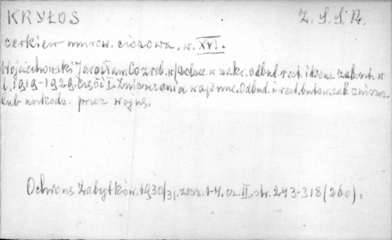 KRYŁOS Z.S.S.R.
cerkiew murow. ciosowa, w. XVI.
Wojciechowski Jarosław. Co zrob. w Polsce w zakr. odbud. rest. i kons. zab. szt. w
l. 1919-1929. Część I. Zniszczenia wojenne. Odbud. i rest. budow. zab. zniszcz.
lub uszkodz. przez wojnę.
Ochrona Zabytków. 1930/31. zesz. 1-4. cz. II. str. 243-318 (260).